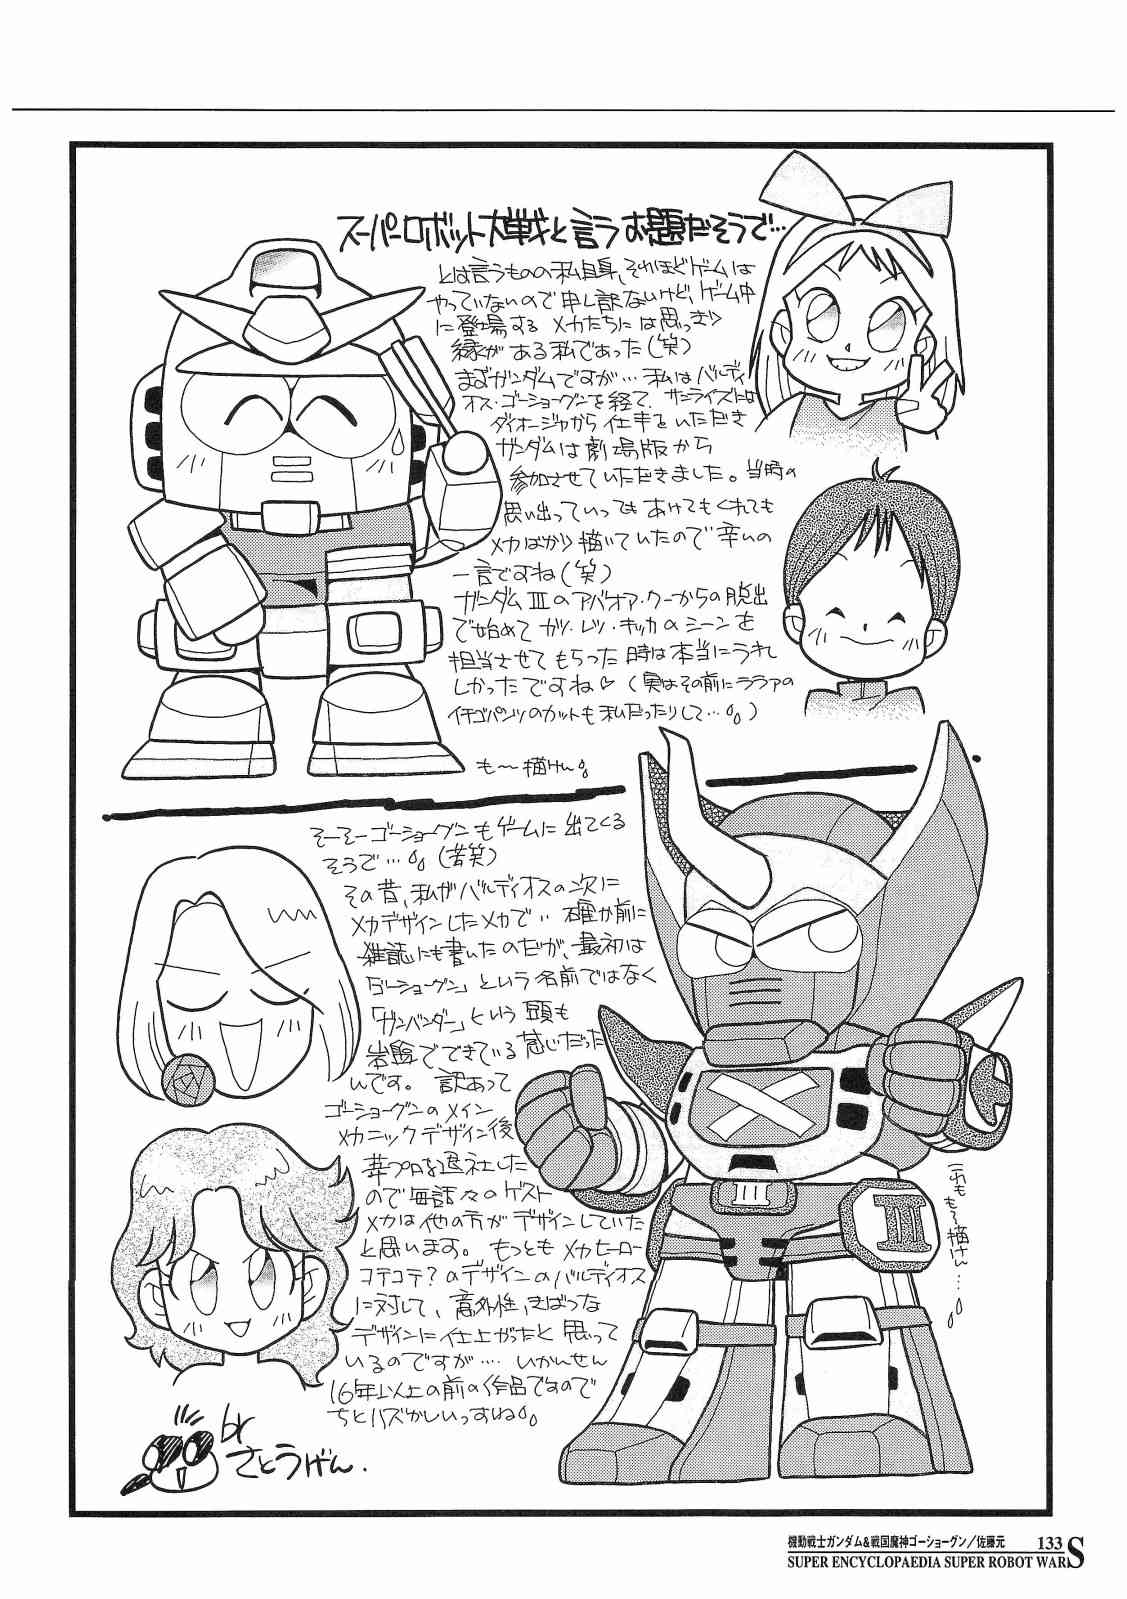 スーパーロボット大戦と言うお題だそうで…
とは言うものの私自身、それほどゲームは
やっていないので申し訳ないけど、ゲーム中
に登場するメカたちには思っきり
縁がある私であった(笑)
まずガンダムですが…私はバルディ
オス・ゴーショーグンを経て、サンライズには
ダイオージャから仕事をいただき
ガンダムは劇場版から
参加させていただきました。当時の
思い出っていってもあけてもくれても
メカばかり描いていたので辛いの
一言ですね(笑)
ガンダムIIIのアバオア・クーからの脱出
で始めてカツ・レツ・キッカのシーンを
担当させてもらった時は本当にうれし
しかったですね♡(実はその前にララァの
イチゴパンツのカットも私だったりして…。)
も〜描けん。
そーそーゴーショーグンもゲームに出てくる
そうで…。(苦笑)
その昔、私がバルディオスの次に
メカデザインしたメカで…確か前に
雑誌にも書いたのだが、最初は
「ゴーショーグン」という名前ではなく
「ガンバンダー」という頭も
岩盤でできている感じだった
んです。訳あって
ゴーショーグンのメイン
メカニックデザイン後
葦プロを退社した
ので毎話々のゲスト
メカは他の方がデザインしていた
と思います。もっともメカヒーロー
コテコテ?のデザインのバルディオス
に対して、意外性、きばつな
デザインに仕上がったと思って
いるのですが…。いかんせん
16年以上の前の作品ですので
ちとハズかしいっすね。
これも
も〜描けん…。
III
III
by
さとうげん.
機動戦士ガンダム&戦国魔神ゴーショーグン/佐藤元 133
SUPER ENCYCLOPAEDIA SUPER ROBOT WARS